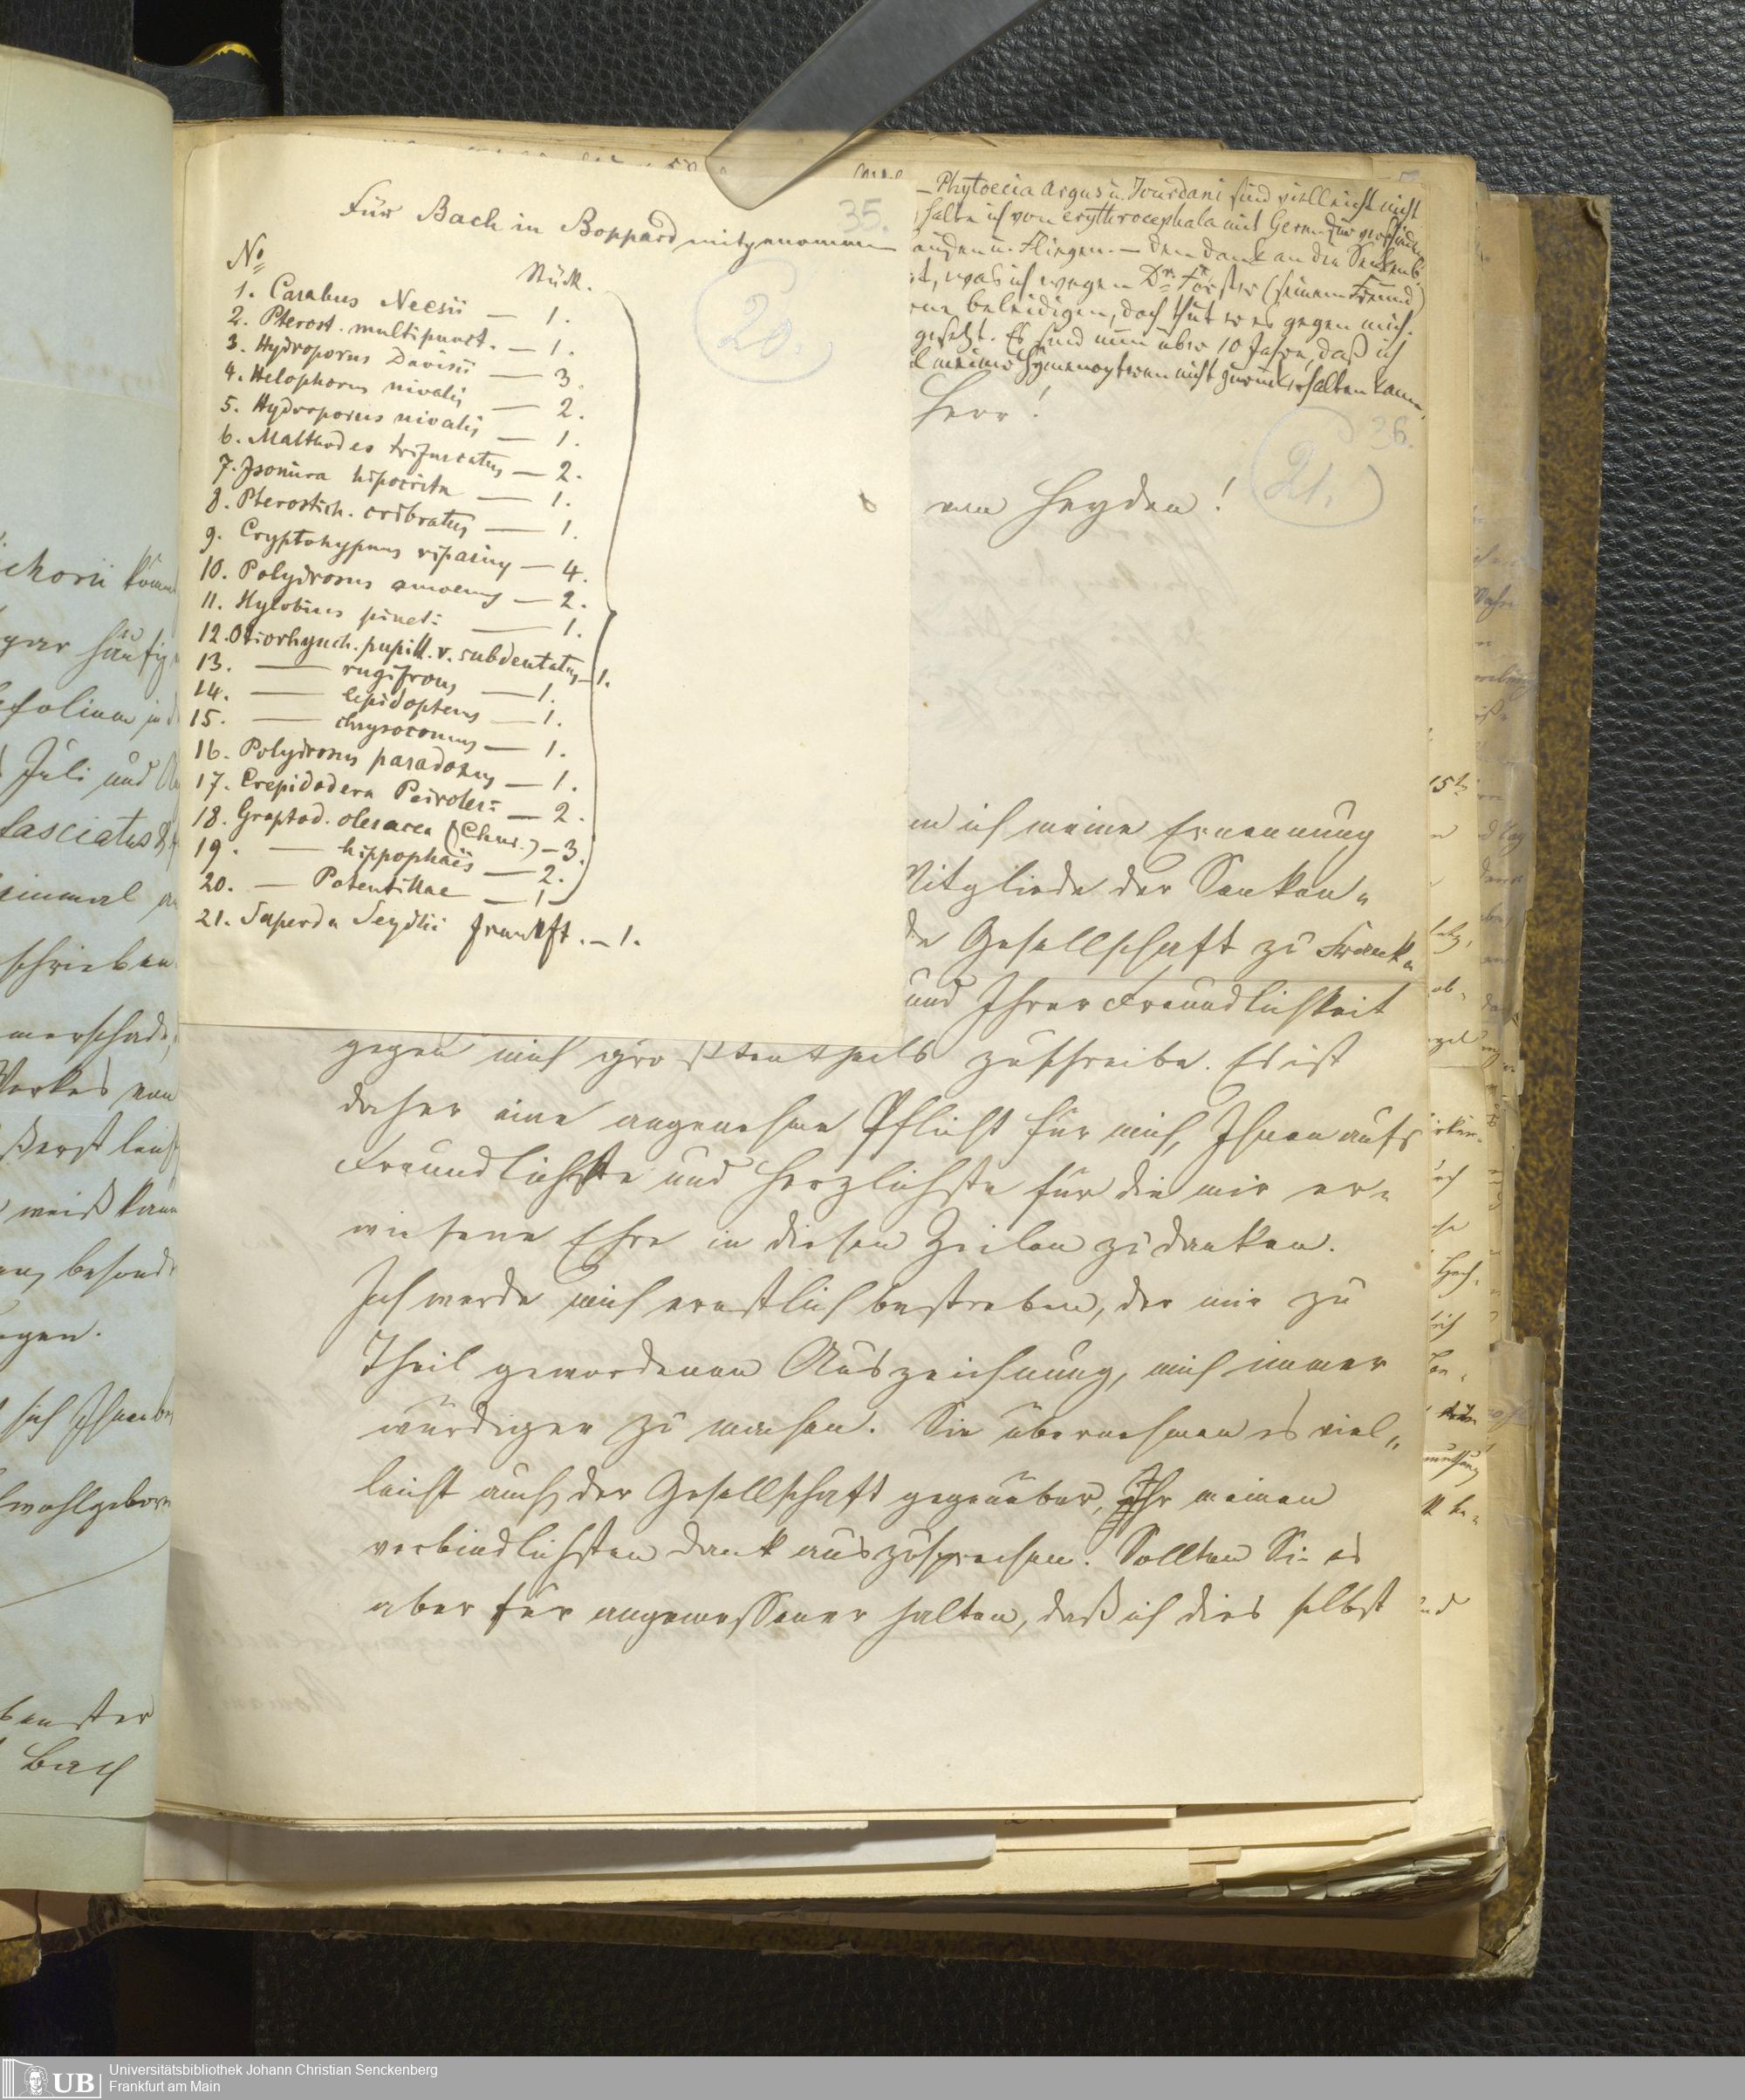 Für Bach in Boppard mitgenommen
35.
20.
No Stück.
1. Carabus Neesii — 1.
2. Pterost. multipunct. — 1.
3. Hydroporus Davisii — 3.
4. Helophorus nivalis — 2.
5. Hydroporus nivalis — 1.
6. Malthodes trifurcatus — 2.
7. Isomira hipocrita — 1.
8. Pterostich. cribratus — 1.
9. Cryptohypnus riparius — 4.
10. Polydrosus amoenus — 2.
11. Hylobius pineti — 1.
12. Otiorhynch. pupill. v. subdentatus — 1.
13. — rugifrons — 1.
14. — lepidopterus — 1.
15. — chrysocomus — 1.
16. Polydrosus paradoxus — 1.
17. Crepidodera Peirolerii — 2.
18. Graptod. oleracea (Chur.) — 3.
19. — hippophaës — 2.
20. — Potentillae — 1
21. Saperda Seydlii Frankft. — 1.
— Phytoecia Argus u. Jourdani sind vielleicht nicht
halte ich von erythrocephala mit Germ. für verschieden
Fliegen. — den Dank an die Senkenb.
was ich wegen Dr. Förster (seinem Freund)
beleidigen, doch thut er es gegen mich.
gesetzt. Es sind nun über 10 Jahre, daß ich
meine Hymenoptern nicht zurück erhalten kann.
Herr!
36.
21.
von Heyden!
ich meine Ernennung
Mitgliede der Senken„
Gesellschaft zu Frank„
und Ihrer Freundlichkeit
gegen mich größtentheils zuschreibe. Es ist
daher eine angenehme Pflicht für mich, Ihnen aufs
Freundlichste und Herzlichste für die mir er„
wiesene Ehre in diesen Zeilen zu danken.
Ich werde mich ernstlich bestreben, der mir zu
Theil gewordenen Auszeichnung, mich immer
würdiger zu machen. Sie übernehmen es viel„
leicht auch der Gesellschaft gegenüber, Ihr meinen
verbindlichsten Dank auszusprechen. Sollten Sie es
aber für angemessener halten, daß ich dies selbst
gar häufig
folium in
Juli und
fasciatus
einmal
schrieben
Werkes von
weiß kaum
besond
sich Ihnen
wohlgeborn
Bach
UB
Universitätsbibliothek Johann Christian Senckenberg
Frankfurt am Main